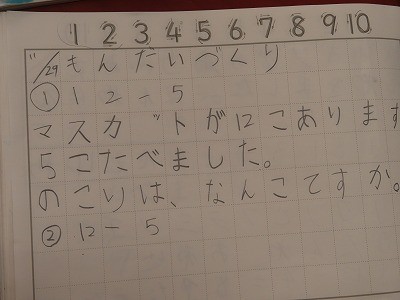 1 2 3 4 5 6 7 8 9 10
11/29 もんだいづくり
① 12-5
マスカットが12こあります
5こたべました。
のこりは、なんこてすか。
② 12-5